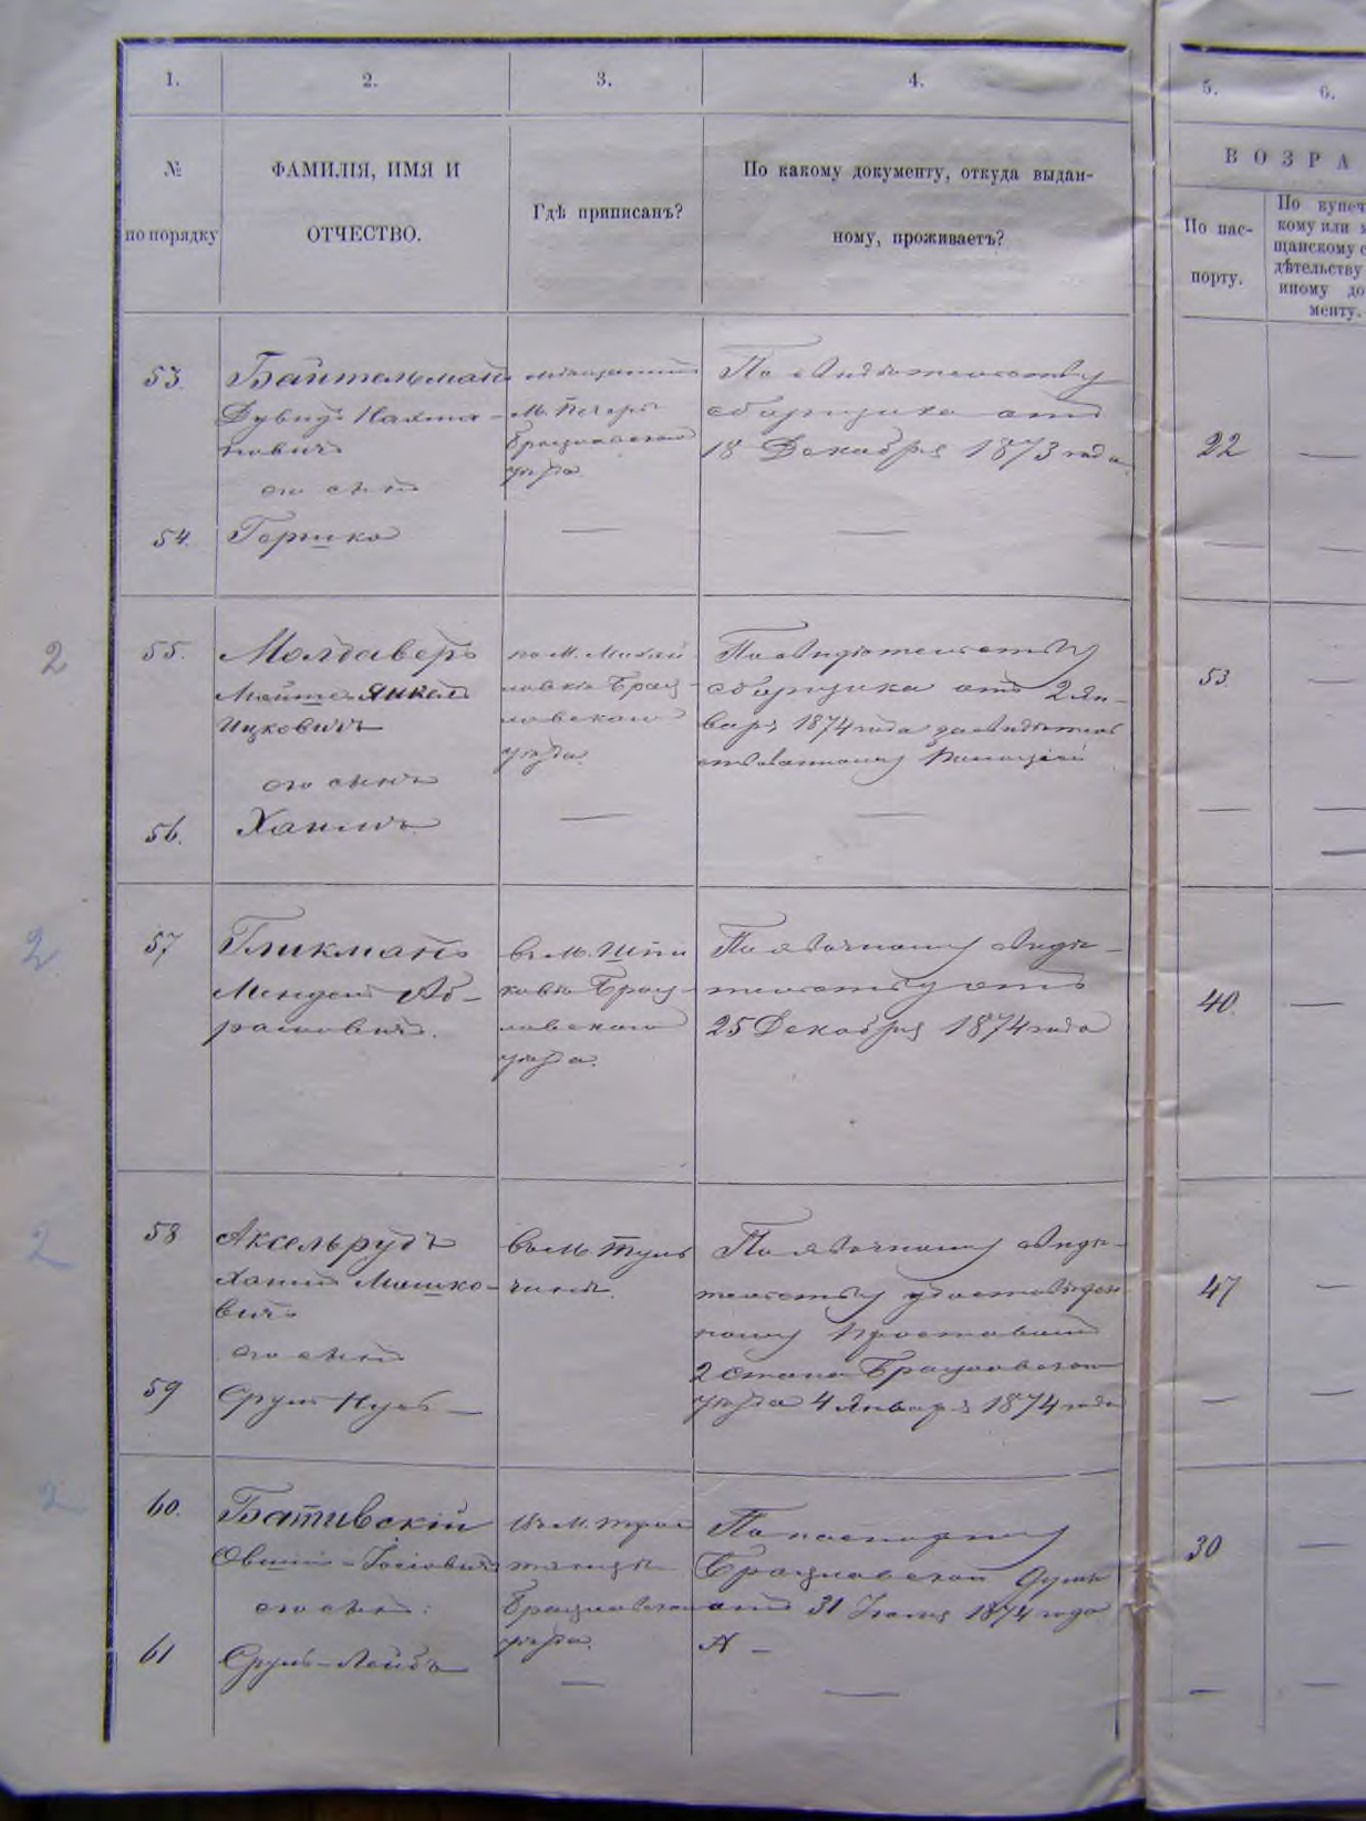 1.
2.
3.
4.
5.
6.
№
по порядку
ФАМИЛІЯ, ИМЯ И
ОТЧЕСТВО.
Гдѣ приписанъ?
По какому документу, откуда выдан-
ному, проживаетъ?
ВОЗРА
По пас-
порту.
По купеч
кому или м
щанскому с
дѣтельству
иному до
менту.
53.
Байтельманъ
Дувидъ Нахма-
новичъ
его сынъ
мѣщанинъ
М. Печеры
Брацлавскаго
уѣзда
По свидѣтельству
сборщика отъ
18 Декабря 1873 года
22
54.
Гершко
55.
Молдаверъ
Мойше Янкель
Ицковичъ
его сынъ
Брац-
лавскаго
уѣзда.
По свидѣтельству
сборщика отъ 2 Ян-
варя 1874 года засвидѣтель
ствованному Полиціей
53
56.
Хаимъ
57
Гликманъ
Мендель Аб-
рамовичъ.
въ М. Шпи
ковѣ Брац-
лавскаго
уѣзда.
По явочному свидѣ-
тельству отъ
25 Декабря 1874 года
40.
58
Аксельрудъ
Хаимъ Мошко-
вичъ
его сынъ
въ М. Туль
чинѣ.
По явочному свидѣ-
тельству удостовѣрен
ному Приставомъ
2 Стана Брацлавскаго
уѣзда 4 Января 1874 года
47
59
Сруль Нухъ
60.
Бативскій
Овшія-Іосіовичъ
его сынъ:
Изъ М. Трос
тянца
Брацлавскаго
уѣзда.
По паспорту
Брацлавской Думы
отъ 31 Іюля 1874 года
30
61
Сруль-Лейбъ
2
2
2
2